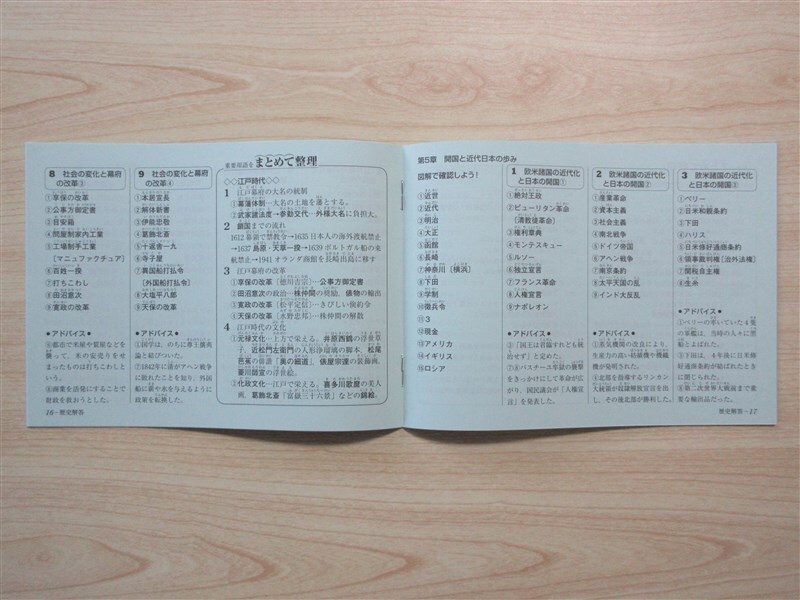 8 社会の変化と幕府
の改革③
①享保の改革
②公事方御定書
③目安箱
④問屋制家内工業
⑤工場制手工業
[マニュファクチュア]
⑥百姓一揆
⑦打ちこわし
⑧田沼意次
⑨寛政の改革
★アドバイス★
④都市で米屋や質屋などを
襲って,米の安売りをせ
まったものは打ちこわしと
いう。
⑧商業を活発にすることで
財政を救おうとした。
16-歴史解答
9 社会の変化と幕府
の改革④
①本居宣長
②解体新書
③伊能忠敬
④葛飾北斎
⑤十返舎一九
⑥寺子屋
⑦異国船打払令
[外国船打払令]
⑧大塩平八郎
⑨天保の改革
★アドバイス★
①国学は,のちに尊王攘夷
論と結びついた。
⑦1842年に清がアヘン戦争
に敗れたことを知り,外国
船に薪や水を与えるように
政策を転換した。
重要用語を まとめて整理
◇◇江戸時代◇◇
1 江戸幕府の大名の統制
①幕藩体制…大名の土地を藩とする。
②武家諸法度→参勤交代…外様大名に負担大。
2 鎖国までの流れ
1612 幕領で禁教令→1635 日本人の海外渡航禁止
→1637 島原・天草一揆→1639 ポルトガル船の来
航禁止→1941 オランダ商館を長崎出島に移す
3 江戸幕府の改革
①享保の改革[徳川吉宗]…公事方御定書
②田沼意次の政治…株仲間の奨励,俵物の輸出
③寛政の改革[松平定信]…きびしい倹約令
④天保の改革[水野忠邦]…株仲間の解散
4 江戸時代の文化
①元禄文化…上方で栄える。井原西鶴の浮世草
子,近松門左衛門の人形浄瑠璃の脚本,松尾
芭蕉の俳諧『奥の細道』,俵屋宗達の装飾画,
菱川師宣の浮世絵。
②化政文化…江戸で栄える。喜多川歌麿の美人
画,葛飾北斎「富嶽三十六景」などの錦絵。
第5章 開国と近代日本の歩み
図解で確認しよう!
①近世
②近代
③明治
④大正
⑤函館
⑥長崎
⑦神奈川[横浜]
⑧下田
⑨学制
⑩徴兵令
⑪3
⑫現金
⑬アメリカ
⑭イギリス
⑮ロシア
1 欧米諸国の近代化
と日本の開国①
①絶対王政
②ピューリタン革命
[清教徒革命]
③権利章典
④モンテスキュー
⑤ルソー
⑥独立宣言
⑦フランス革命
⑧人権宣言
⑨ナポレオン
★アドバイス★
③「国王は君臨すれども統
治せず」と定めた。
⑦⑧バスチーユ牢獄の襲撃
をきっかけにして革命が広
がり,国民議会が「人権宣
言」を発表した。
2 欧米諸国の近代化
と日本の開国②
①産業革命
②資本主義
③社会主義
④南北戦争
⑤ドイツ帝国
⑥アヘン戦争
⑦南京条約
⑧太平天国の乱
⑨インド大反乱
★アドバイス★
①蒸気機関の改良により,
生産力の高い紡績機や織機
機が発明された。
④北部を指導するリンカン
大統領が奴隷解放宣言を出
し,その後北部が勝利した。
3 欧米諸国の近代化
と日本の開国③
①ペリー
②日米和親条約
③下田
④ハリス
⑤日米修好通商条約
⑥領事裁判権[治外法権]
⑦関税自主権
⑧生糸
★アドバイス★
①ペリーの率いていた4隻
の軍艦は,当時の人々に黒
船とよばれた。
③下田は,4年後に日米修
好通商条約が結ばれたとき
に閉じられた。
⑧第二次世界大戦前まで重
要な輸出品だった。
歴史解答-17